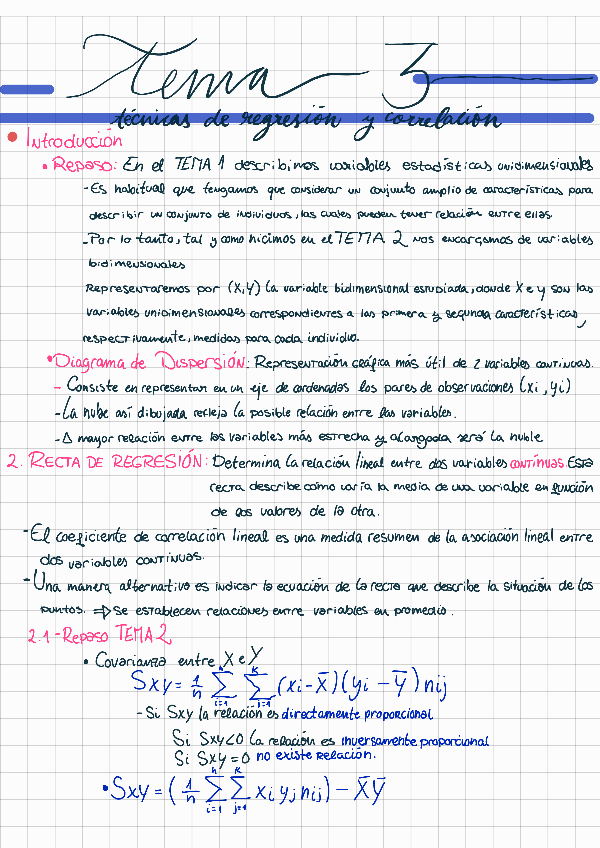 Tema 3
técnicas de regresión y correlación
• Introducción
• Repaso: En el TEMA 1 describimos variables estadísticas unidimensionales
- Es habitual que tengamos que considerar un conjunto amplio de características para
describir un conjunto de individuos, las cuales pueden tener relación entre ellas.
- Por lo tanto, tal y como hicimos en el TEMA 2 nos encargamos de variables
bidimensionales
Representaremos por (X,Y) la variable bidimensional estudiada, donde X e Y son las
variables unidimensionales correspondientes a las primera y segunda características,
respectivamente, medidas para cada individuo.
• Diagrama de Dispersión: Representación gráfica más útil de 2 variables continuas.
- Consiste en representar en un eje de cordenadas los pares de observaciones (xi, yi)
- La nube así dibujada refleja la posible relación entre las variables.
- A mayor relación entre las variables más estrecha y alargada será la nuble
2. RECTA DE REGRESIÓN: Determina la relación lineal entre dos variables continuas. Esta
recta describe cómo varía la media de una variable en función
de los valores de la otra.
- El coeficiente de correlación lineal es una medida resumen de la asociación lineal entre
dos variables continuas.
- Una manera alternativa es indicar la ecuación de la recta que describe la situación de los
puntos. ⇒ Se establecen relaciones entre variables en promedio.
2.1 - Repaso TEMA 2
• Covarianza entre X e Y
Sxy = 1/n Σ(i=1, h) Σ(i=1, k) (xi - X̄)(yi - Ȳ) nij
- Si Sxy la relación es directamente proporcional
Si Sxy<0 la relación es inversamente proporcional
Si Sxy = 0 no existe relación.
• Sxy = (1/n Σ(i=1, h) Σ(j=1, k) xi yj nij) - X̄Ȳ